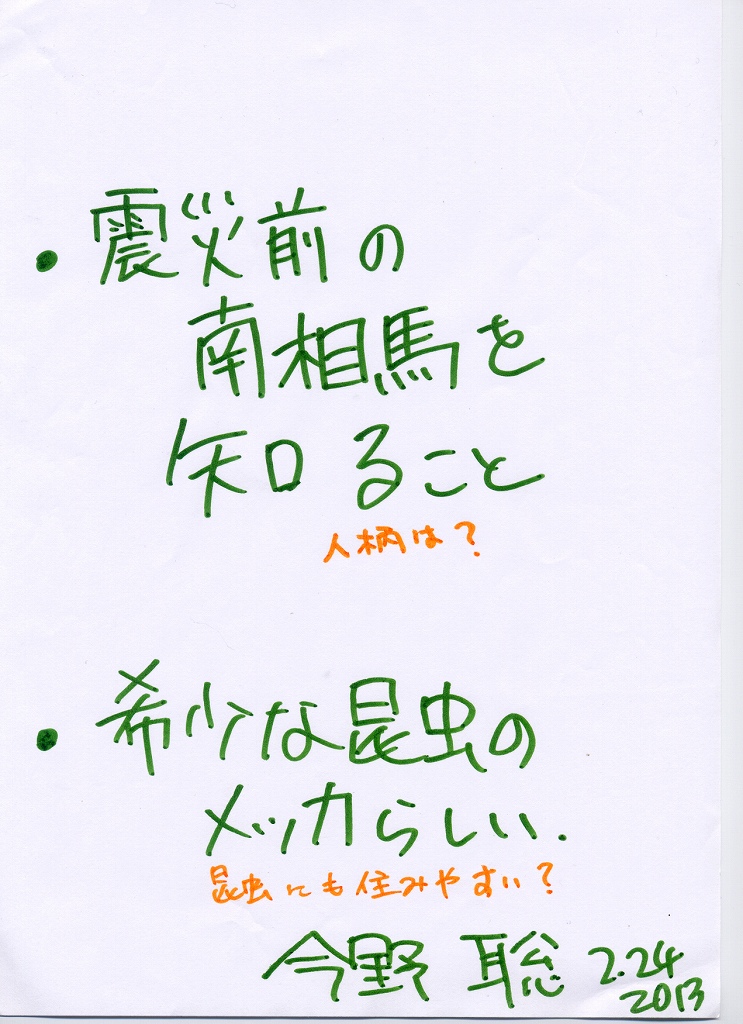 ・震災前の
南相馬を
知ること
人柄は？
・希少な昆虫の
メッカらしい.
昆虫にも住みやすい？
今野 聡 2.24
2013